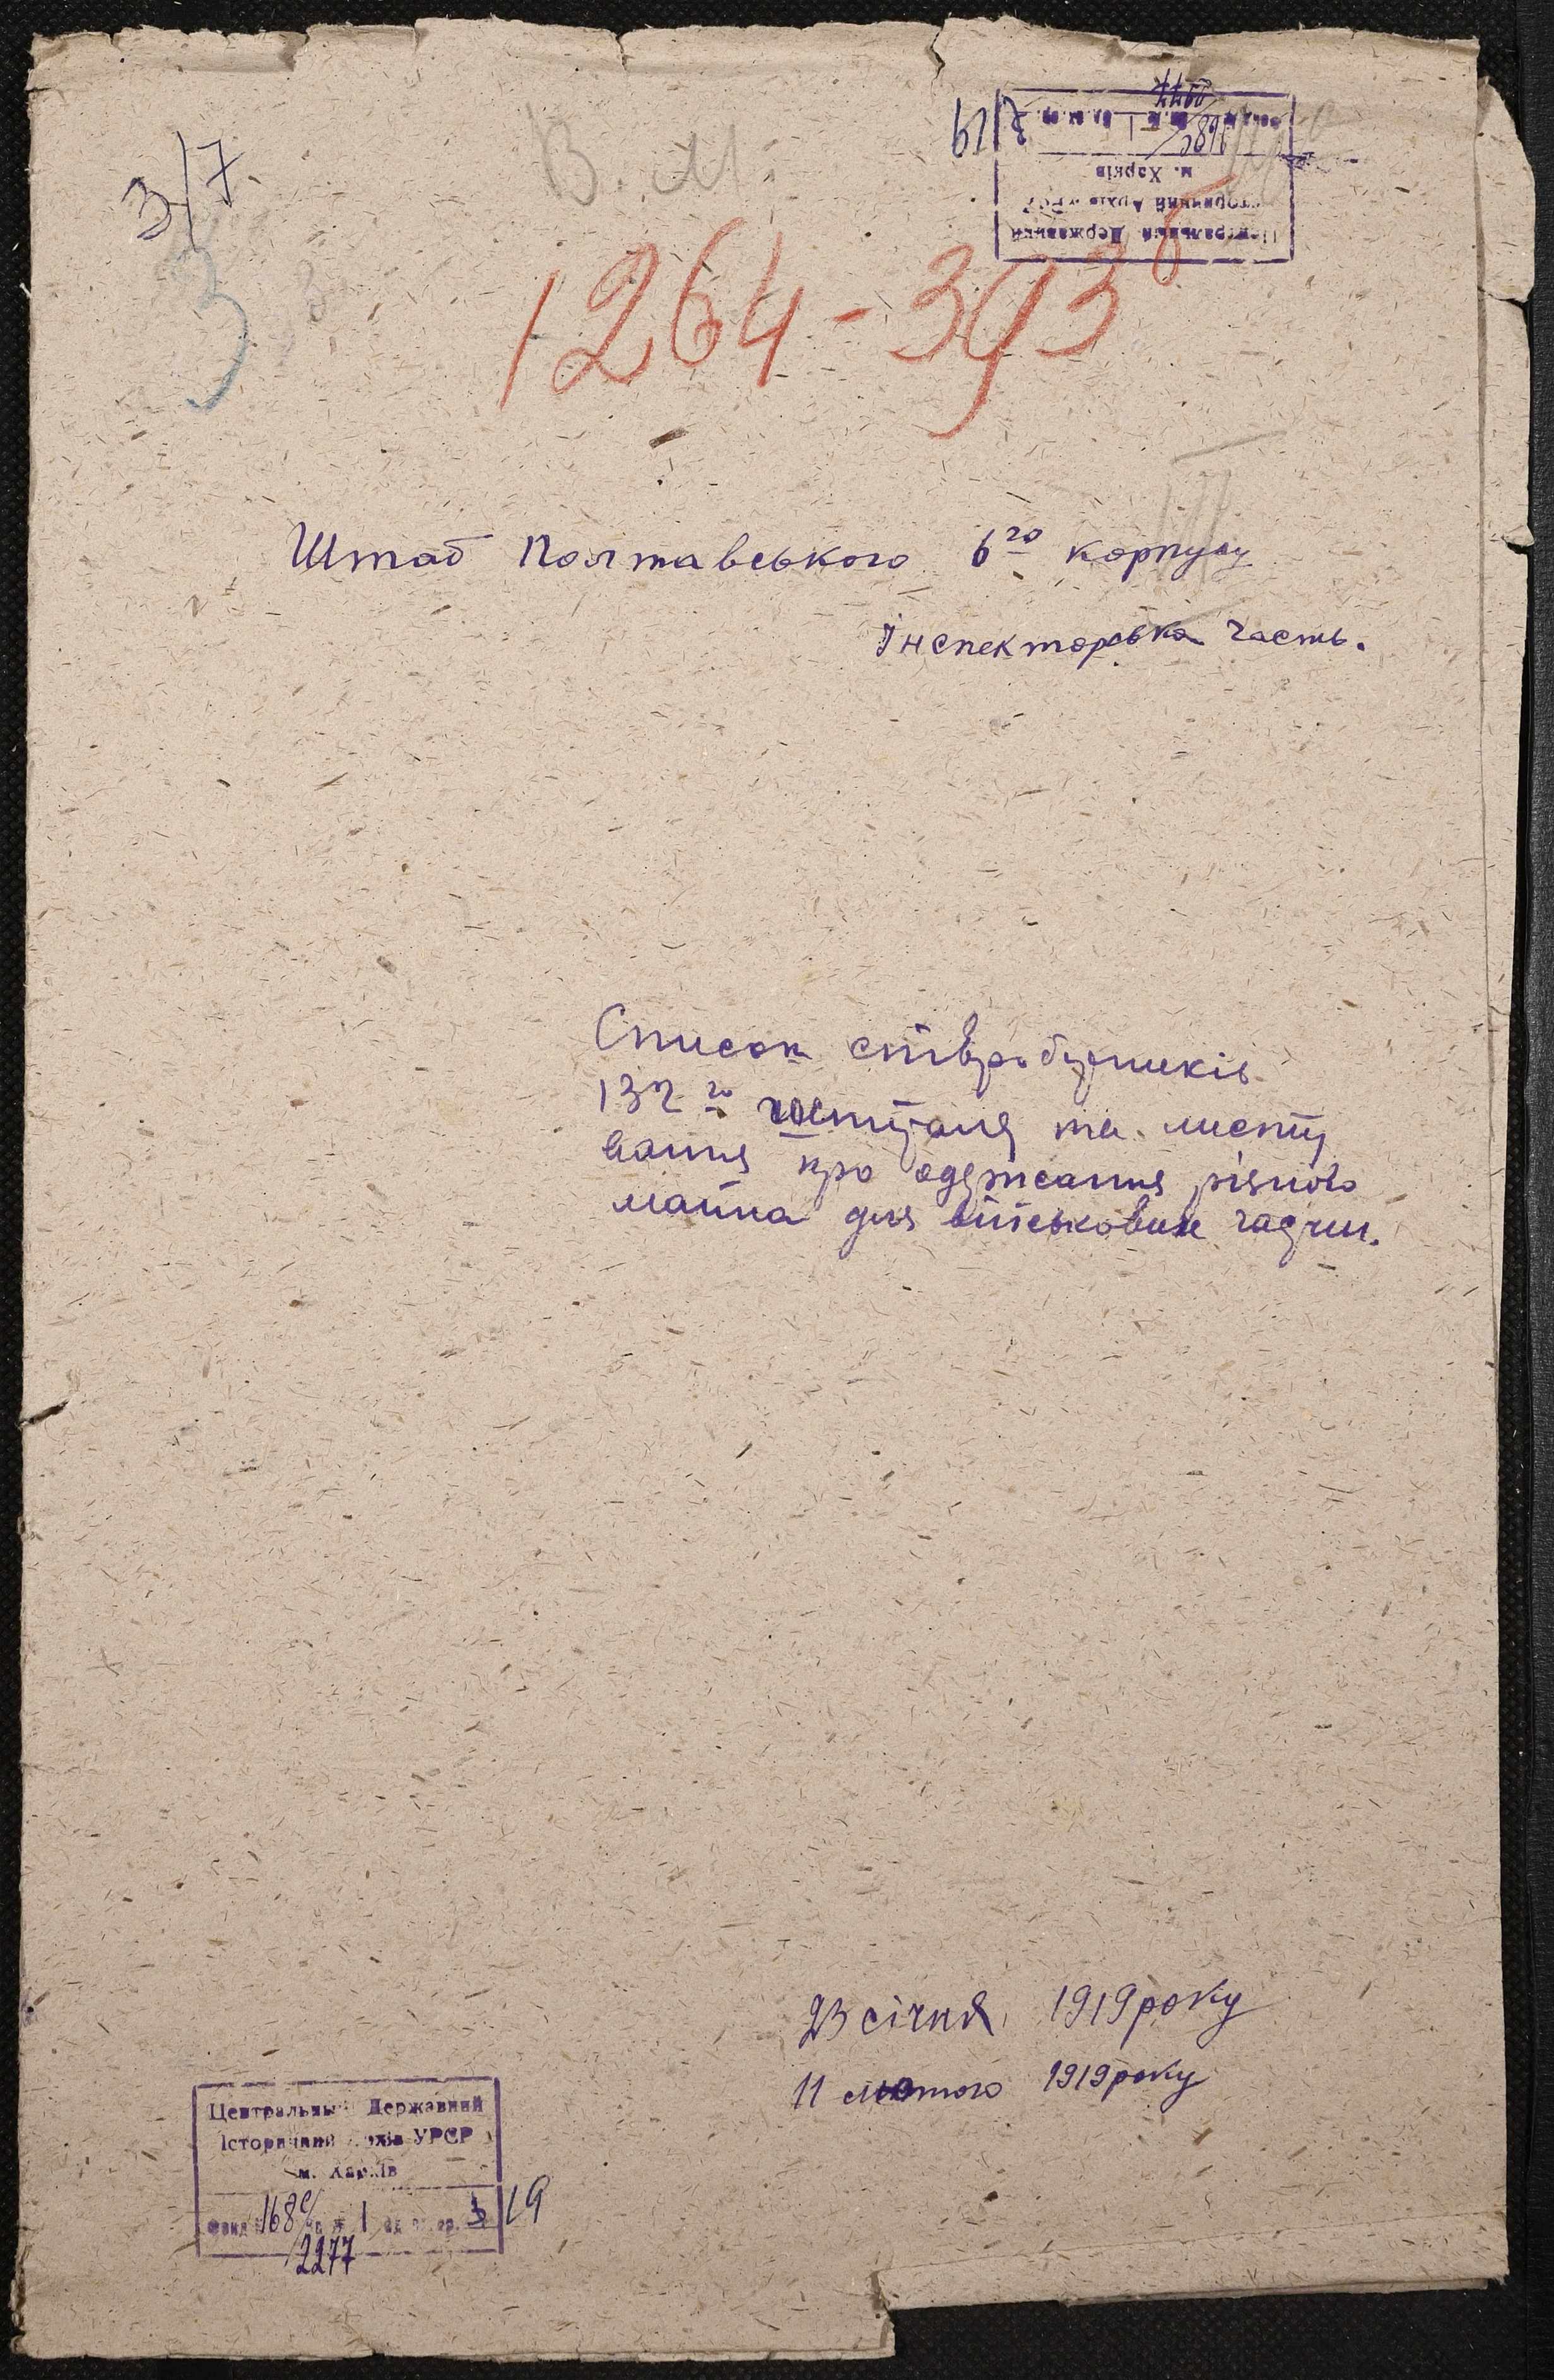 3/7.
В. М.
3
1264-393
Центральний Державний
Історичний Архів УРСР
м. Харків
168с/ 1 3/19
2277
Штаб Полтавського 6го корпусу
Інспекторська часть.
Список співробітників
132го госпіталя та листу
вання про одержання різного
майна для військових частин.
23 січня 1919 року
11 лютого 1919 року
Центральний Державний
Історичний Архів УРСР
м. Харків
фонд № 168с/ оп. № 1 од. зб. 3 19
2277